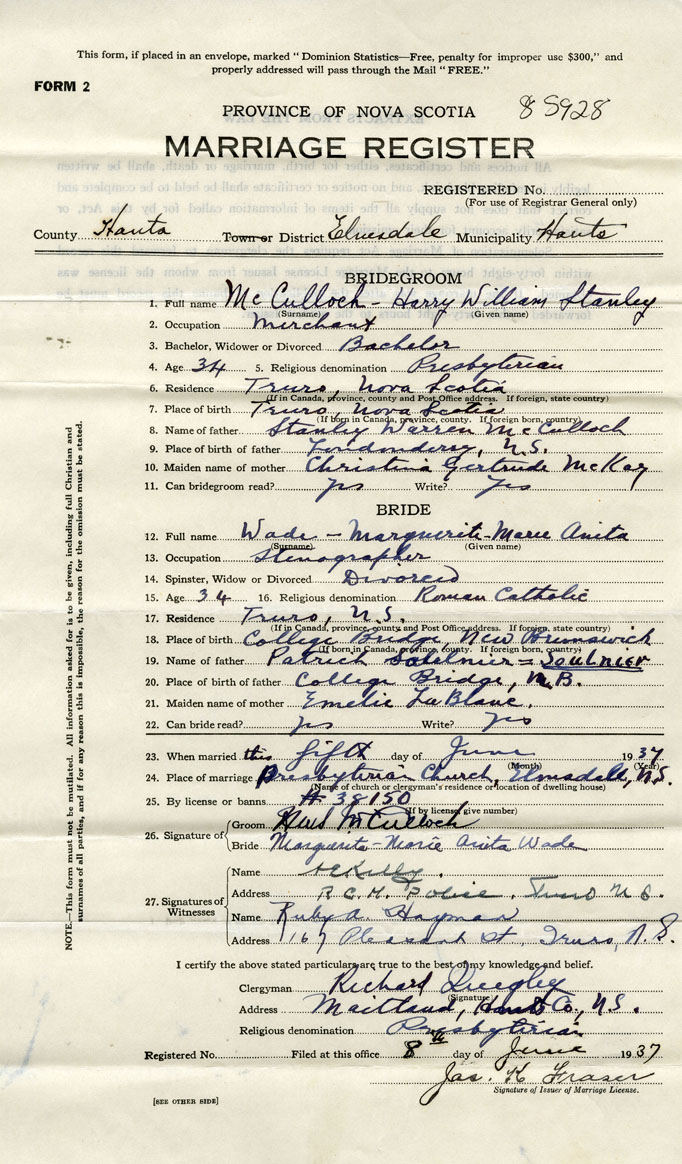 This form, if placed in an envelope, marked “ Dominion Statistics—Free, penalty for improper use $300,” and
properly addressed will pass through the Mail “ FREE.”
FORM 2
PROVINCE OF NOVA SCOTIA 8 5928
MARRIAGE REGISTER
REGISTERED No.
(For use of Registrar General only)
County Hants Town or District Elmsdale Municipality Hants
BRIDEGROOM
1. Full name McCulloch - Harry William Stanley
(Surname) (Given name)
2. Occupation Merchant
3. Bachelor, Widower or Divorced Bachelor
4. Age 34 5. Religious denomination Presbyterian
6. Residence Truro, Nova Scotia
(If in Canada, province, county and Post Office address. If foreign, state country)
7. Place of birth Truro, Nova Scotia
(If born in Canada, province, county. If foreign born, country)
8. Name of father Stanley Warren McCulloch
9. Place of birth of father Londonderry, N.S.
10. Maiden name of mother Christina Gertrude McKay
11. Can bridegroom read? Yes Write? Yes
BRIDE
12. Full name Wade - Marguerite-Marie Anita
(Surname) (Given name)
13. Occupation Stenographer
14. Spinster, Widow or Divorced Divorced
15. Age 34 16. Religious denomination Roman Catholic
17. Residence Truro, N.S.
(If in Canada, province, county and Post Office address. If foreign, state country)
18. Place of birth College Bridge, New Brunswick
(If born in Canada, province, county. If foreign born, country)
19. Name of father Patrick = Soulnier
20. Place of birth of father College Bridge, N.B.
21. Maiden name of mother Emelie LaBlanc.
22. Can bride read? Yes Write? Yes
23. When married this fifth day of June 1937
(Month) (Year)
24. Place of marriage Presbyterian Church, Elmsdale, N.S.
(Name of church or clergyman's residence or location of dwelling house)
25. By license or banns # 38150
(If by license, give number)
26. Signature of Groom McCulloch
Bride Marguerite-Marie Anita Wade
27. Signatures of Witnesses
Name
Address R.C.M. Police, Truro N.S.
Name Ruby A. Hayman
Address 167 Pleasant St, Truro, N.S.
I certify the above stated particulars are true to the best of my knowledge and belief.
Clergyman Richard Quegley
(Signature)
Address Maitland, Hants Co, N.S.
Religious denomination Presbyterian
Registered No. Filed at this office 8th day of June 1937
Jas. K Fraser
Signature of Issuer of Marriage License.
[SEE OTHER SIDE]
NOTE.—This form must not be mutilated. All information asked for is to be given, including full Christian and
surnames of all parties, and if for any reason this is impossible, the reason for the omission must be stated.